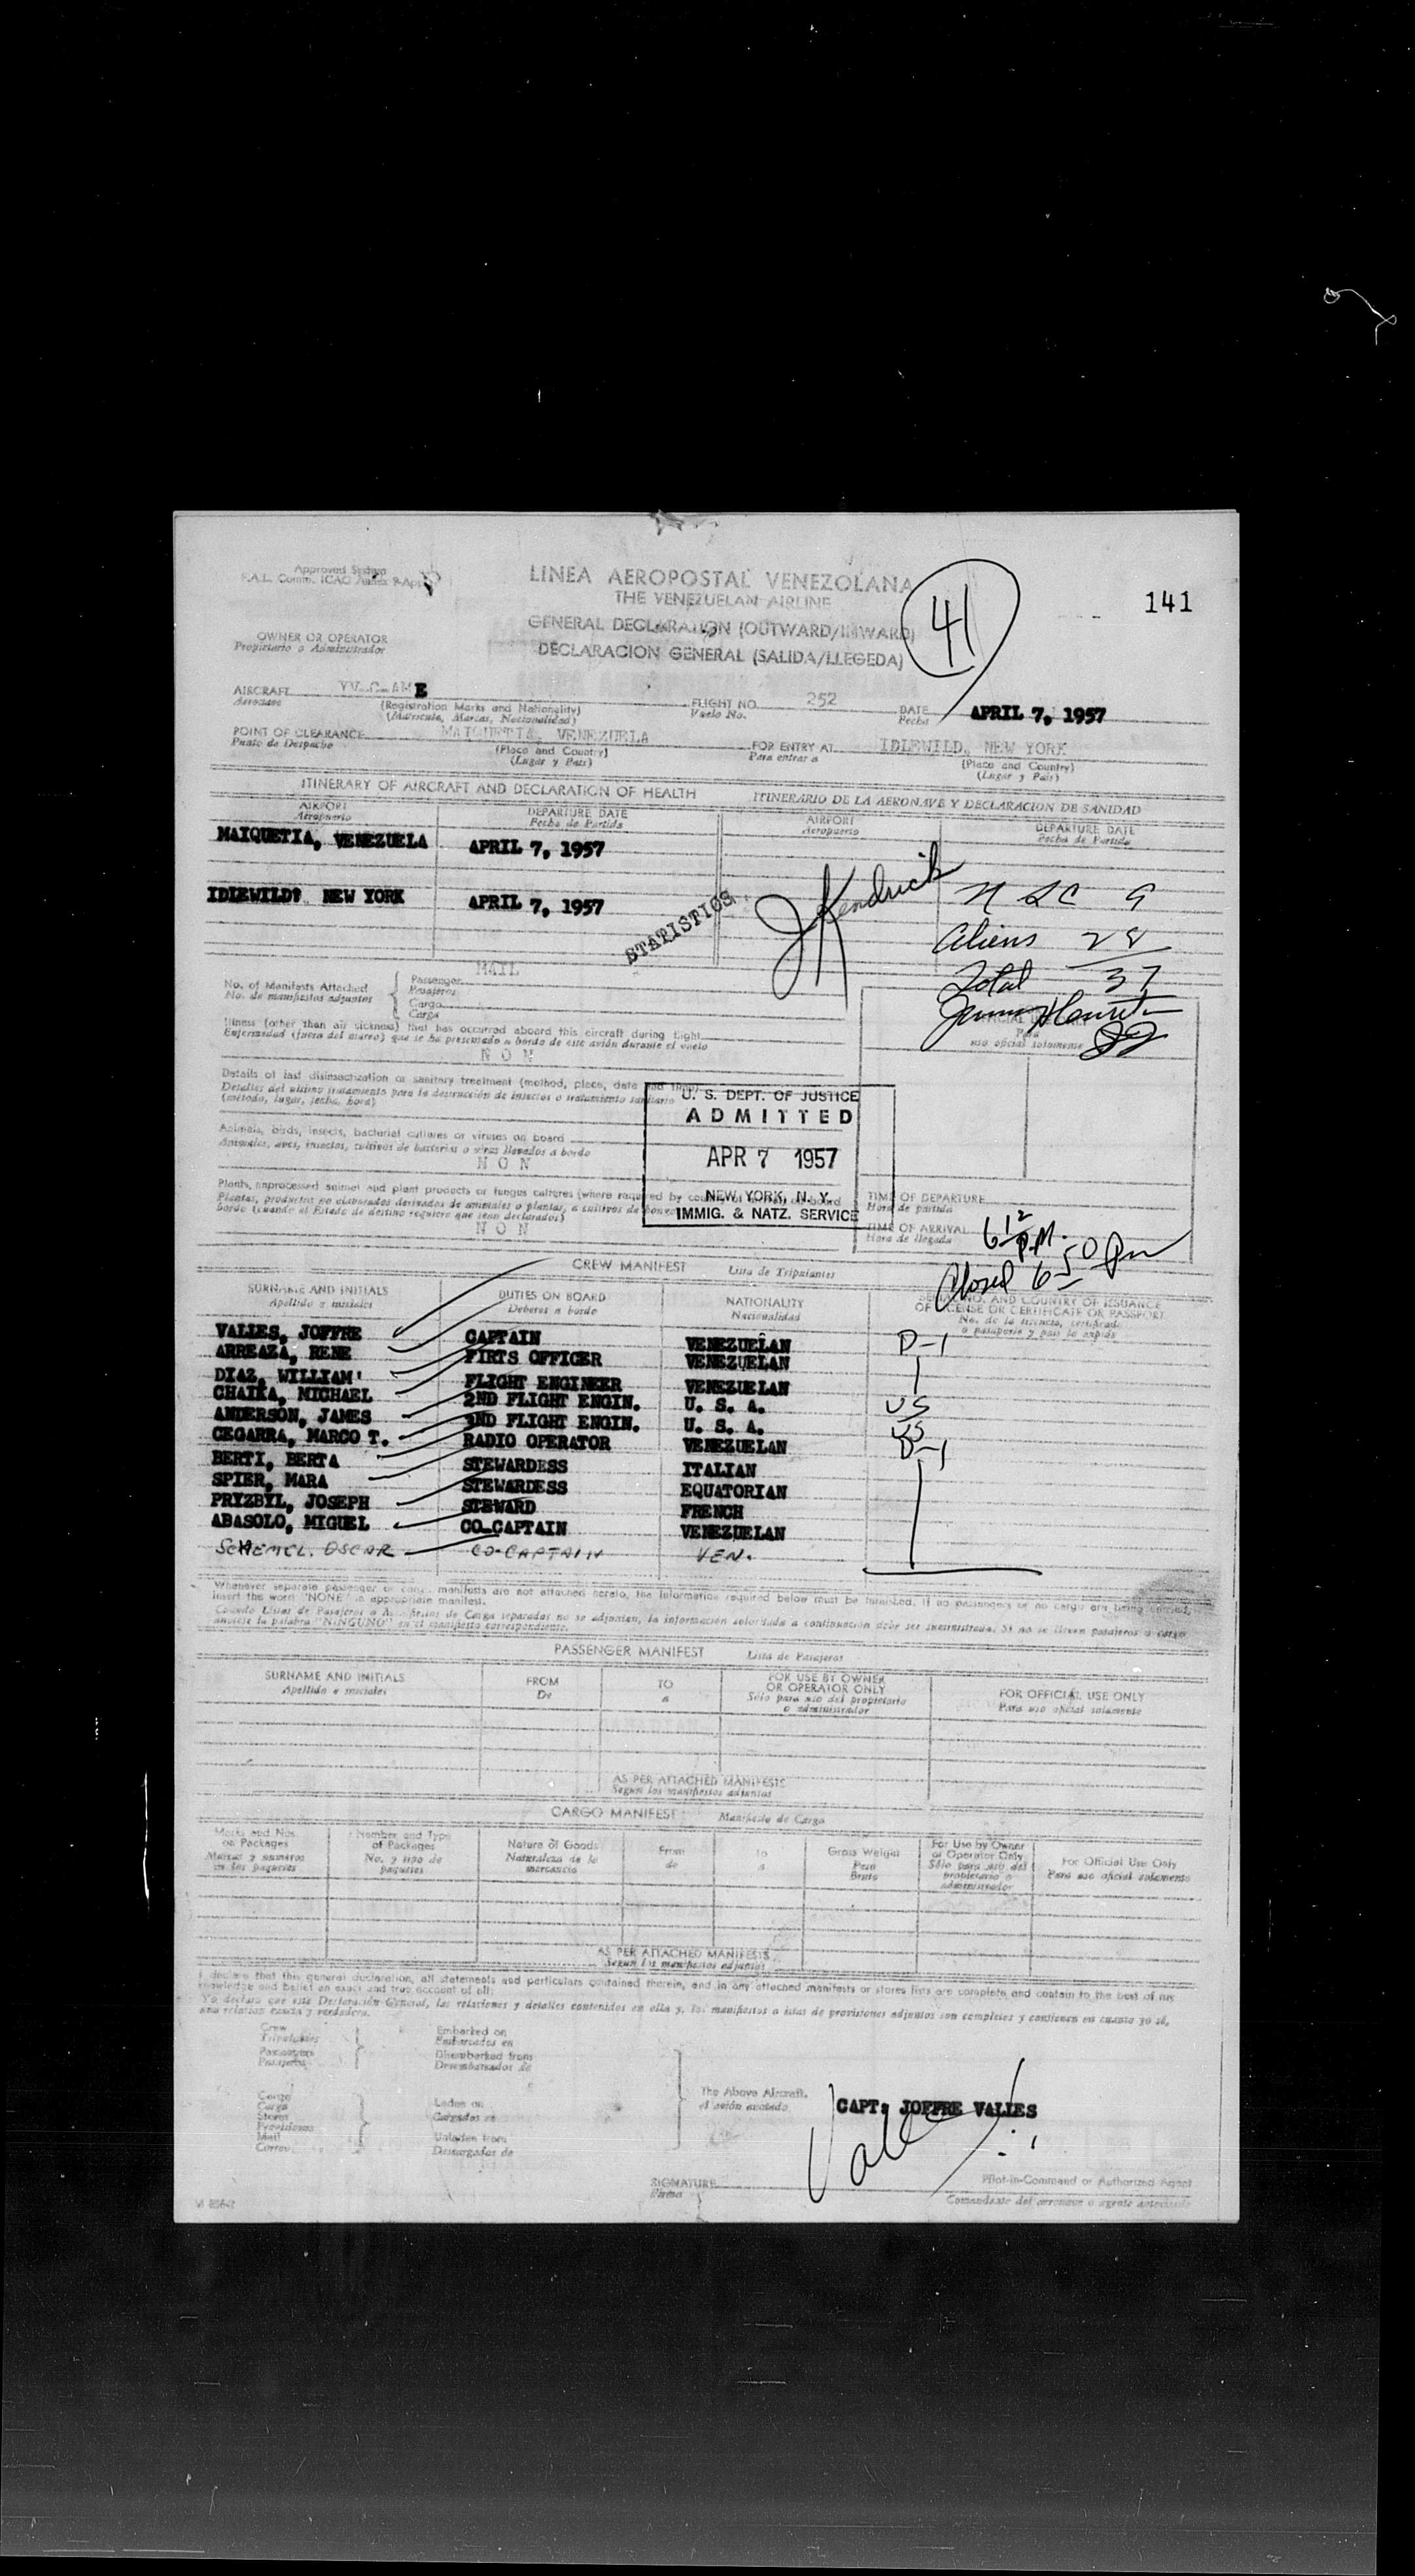 Approved System
F.A.L. Comm. ICAO Annex 9-Ap
LINEA AEROPOSTAL VENEZOLANA
THE VENEZUELAN AIRLINE
GENERAL DECLARATION (OUTWARD/INWARD)
DECLARACION GENERAL (SALIDA/LLEGEDA)
41
141
OWNER OR OPERATOR
Propietario o Administrador
AIRCRAFT YV-C-AME
(Registration Marks and Nationality)
(Matricula, Marias, Nacionalidad)
FLIGHT NO. 252
Vuelo No.
DATE APRIL 7, 1957
Fecha
POINT OF CLEARANCE MAIQUETIA, VENEZUELA
Punto de Despacho
(Place and Country)
(Lugar y Pais)
FOR ENTRY AT IDLEWILD, NEW YORK
Para entrar a
(Place and Country)
(Lugar y Pais)
ITINERARY OF AIRCRAFT AND DECLARATION OF HEALTH
ITINERARIO DE LA AERONAVE Y DECLARACION DE SANIDAD
AIRPORT DEPARTURE DATE AIRPORT DEPARTURE DATE
Aeropuerto Fecha de Partida Aeropuerto Fecha de Partida
MAIQUETIA, VENEZUELA APRIL 7, 1957
IDLEWILD? NEW YORK APRIL 7, 1957
STATISTICS
J Kendrick
9
Aliens 28
Total 37
MAIL
No. of Manifests Attached
No. de manifiestos adjuntos
Passenger
Pasajeros
Cargo
Carga
Para
uso oficial solamente
Illness (other than air sickness) that has occurred aboard this circraft during flight
Enfermedad (fuera del mareo) que se ha presentado a bordo de este avión durante el vuelo
N O N
Details of last disinsectization or sanitary treatment (method, place, date and time)
Detalles del ultimo tratamiento para la destrucción de insectos o tratamiento sanitario
(método, lugar, fecha, hora)
U. S. DEPT. OF JUSTICE
ADMITTED
APR 7 1957
NEW YORK, N. Y.
IMMIG. & NATZ. SERVICE
Animals, birds, insects, bacterial cultures or viruses on board
Animales, aves, insectos, cultivos de bacterias o virus llevados a bordo
N O N
Plants, unprocessed animal and plant products or fungus cultures (where required by
Plantas, productos no elaborados derivados de animales o plantas, o cultivos de
bordo (cuando el Estado de destino requiere que sean declarados)
N O N
TIME OF DEPARTURE
Hora de partida
TIME OF ARRIVAL 6 12 P.M.
Hora de llegada
Closed 6 50 Pm
CREW MANIFEST Lista de Tripulantes
SURNAME AND INITIALS DUTIES ON BOARD NATIONALITY SERIAL NO. AND COUNTRY OF ISSUANCE
OF LICENSE OR CERTIFICATE OR PASSPORT
Apellido e iniciales Deberes a bordo Nacionalidad No. de la licencia, certificado
o pasaporte y pais lo expide
VALLES, JOFFRE CAPTAIN VENEZUELAN D-1
ARREAZA, RENE FIRTS OFFICER VENEZUELAN
DIAZ, WILLIAM FLIGHT ENGINEER VENEZUELAN
CHAIKA, MICHAEL 2ND FLIGHT ENGIN. U. S. A. US
ANDERSON, JAMES 3ND FLIGHT ENGIN. U. S. A. US
CEGARRA, MARCO T. RADIO OPERATOR VENEZUELAN D-1
BERTI, BERTA STEWARDESS ITALIAN
SPIER, MARA STEWARDESS EQUATORIAN
PRYZBYL, JOSEPH STEWARD FRENCH
ABASOLO, MIGUEL CO-CAPTAIN VENEZUELAN
SCHEMEL. OSCAR CO-CAPTAIN VEN.
Whenever separate passenger or cargo manifests are not attached hereto, the information required below must be furnished. If no passengers or no cargo are being carried,
insert the word "NONE" in appropriate manifest.
Cuando Listas de Pasajeros o Manifiestos de Carga separadas no se adjuntan, la información solicitada a continuación debe ser suministrada. Si no se llevan pasajeros o carga
anotese la palabra "NINGUNO" en el manifiesto correspondiente.
PASSENGER MANIFEST Lista de Pasajeros
SURNAME AND INITIALS FROM TO FOR USE BY OWNER
OR OPERATOR ONLY FOR OFFICIAL USE ONLY
Apellido e iniciales De a Sólo para uso del propietario
o administrador Para uso oficial solamente
AS PER ATTACHED MANIFESTS
Segun los manifiestos adjuntos
CARGO MANIFEST Manifiesto de Cargo
Marks and Nos.
on Packages
Marcas y numeros
en los paquetes
Number and Type
of Packages
No. y tipo de
paquetes
Nature of Goods
Naturaleza de la
mercancia
From
de
To
a
Gross Weight
Peso
Bruto
For Use by Owner
or Operator Only
Sólo para uso del
propietario o
administrador
For Official Use Only
Para uso oficial solamente
AS PER ATTACHED MANIFESTS
Segun los manifiestos adjuntos
I declare that this general declaration, all statements and particulars contained therein, and in any attached manifests or stores lists are complete and contain to the best of my
knowledge and belief an exact and true account of all:
Yo declaro que esta Declaración General, las relaciones y detalles contenidos en ella y, los manifiestos o listas de provisiones adjuntos son completos y contienen en cuanto yo sé,
una relacion exacta y verdadera.
Crew
Tripulantes
Passengers
Pasajeros
Embarked on
Embarcados en
Disembarked from
Desembarcados de
Cargo
Carga
Stores
Provisiones
Mail
Correo
Laden on
Cargados en
Unladen from
Descargados de
The Above Aircraft.
el avión anotado
CAPT: JOFFRE VALLES
SIGNATURE
Firma
Pilot-in-Command or Authorized Agent
Comandante del aeronave o agente autorizado